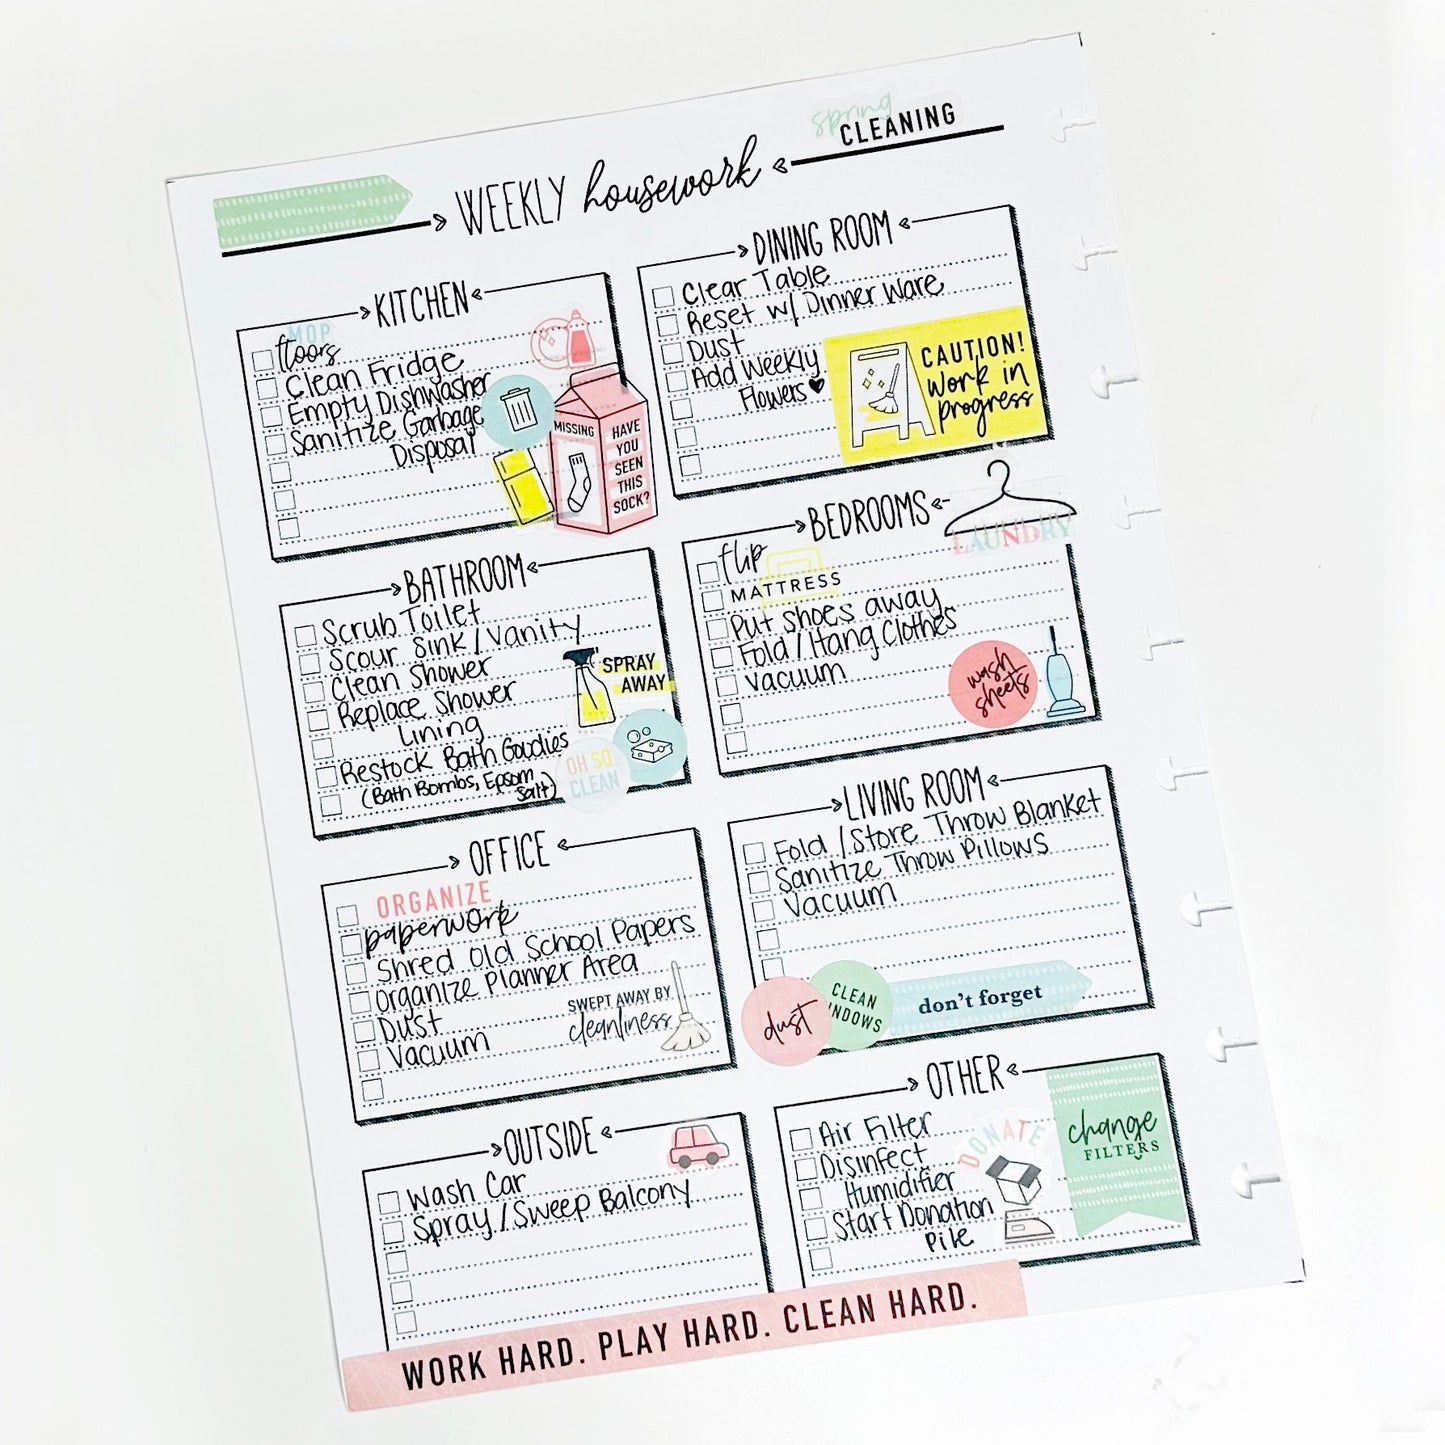 spring
CLEANING
WEEKLY housework
KITCHEN
MOP
floors
Clean Fridge
Empty Dishwasher
Sanitize Garbage
Disposal
MISSING
HAVE
YOU
SEEN
THIS
SOCK?
DINING ROOM
Clear Table
Reset w/ Dinner Ware
Dust
Add Weekly
Flowers
CAUTION!
work in
progress
BATHROOM
Scrub Toilet
Scour Sink / Vanity
Clean Shower
Replace Shower
Lining
Restock Bath Goodies
(Bath Bombs, Epsom
Salt)
SPRAY
AWAY
OH SO
CLEAN
BEDROOMS
LAUNDRY
flip
MATTRESS
Put shoes away
Fold / Hang Clothes
Vacuum
wash
sheets
OFFICE
ORGANIZE
paperwork
Shred Old School Papers
Organize Planner Area
Dust
Vacuum
SWEPT AWAY BY
cleanliness
LIVING ROOM
Fold / Store Throw Blanket
Sanitize Throw Pillows
Vacuum
dust
CLEAN
INDOWS
don't forget
OUTSIDE
Wash Car
Spray / Sweep Balcony
OTHER
Air Filter
Disinfect
Humidifier
Start Donation
Pile
DONATE
change
FILTERS
WORK HARD. PLAY HARD. CLEAN HARD.